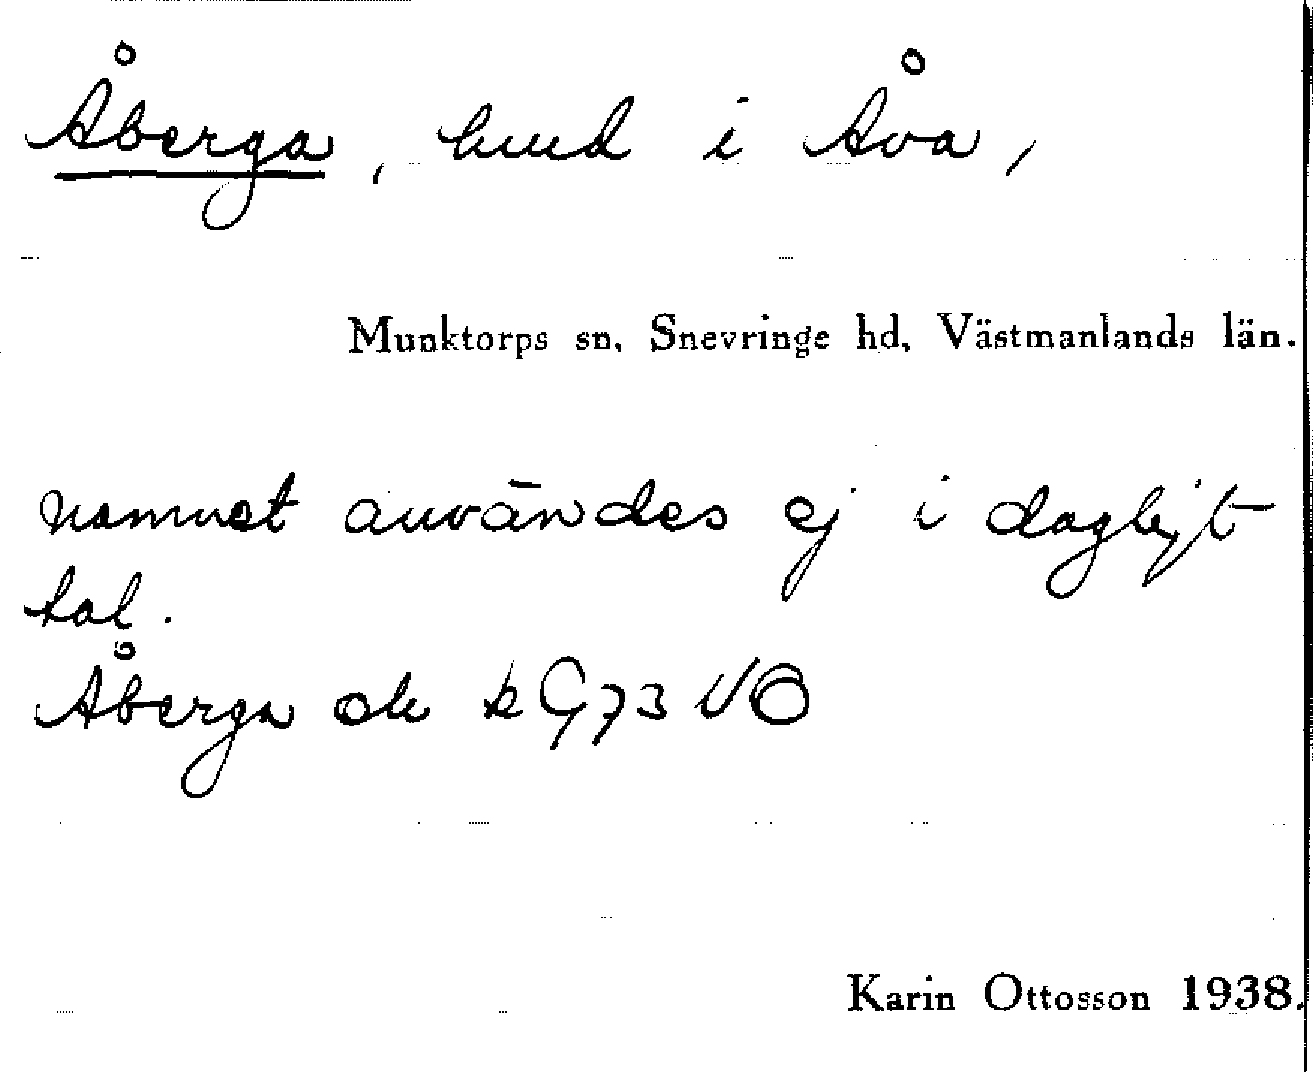 Åberga, hmd i Åva,
Munktorps sn, Snevringe hd, Västmanlands län.
namnet användes ej i dagligt
tal.
Åberga ek
Karin Ottosson 1938.